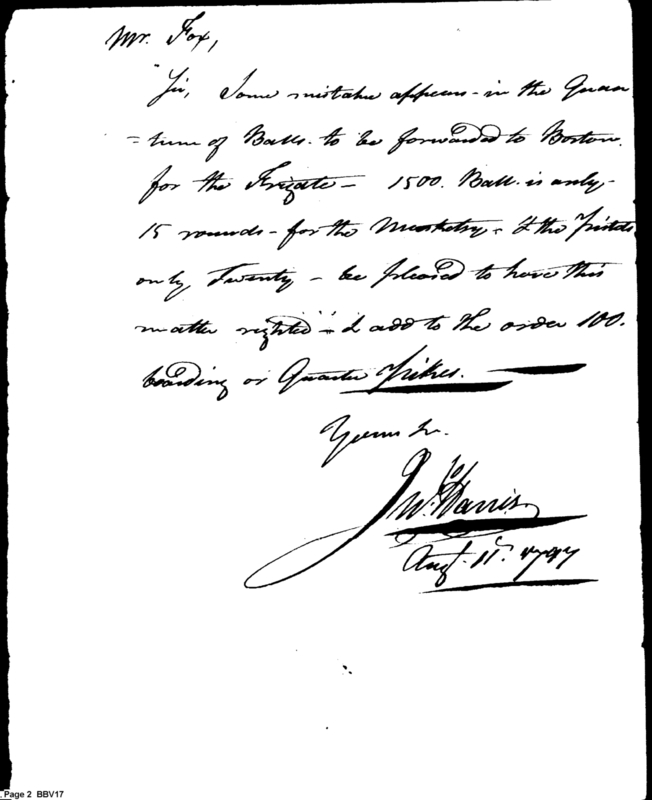 Mr. Fox,
Sir, Some mistake appears - in the Quan
= tum of Balls. to be forwarded to Boston.
for the Frigate - 1500. Ball. is only -
15 rounds - for the Musketry - & the Pistols
only Twenty - be pleased to have this
matter righted - & add to the order 100.
boarding or Quarter Pikes.
Yours &c.
Jno. Harris
Augt. 11th. 1797
. Page 2 BBV17